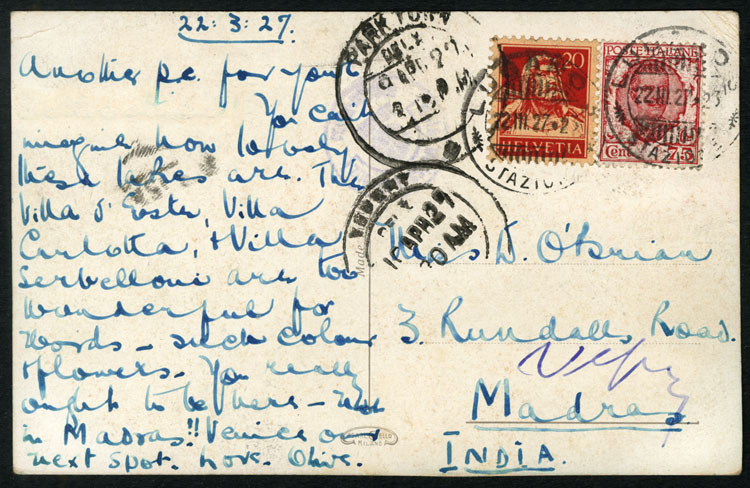 22:3:27.
Another p.c. for you!
You can't
imagine how lovely
these lakes are. The
Villa d'Este, Villa
Carlotta, & Villa
Serbelloni are too
wonderful for
words - such colour
& flowers. You really
ought to be here - not
in Madras!! Venice our
next spot. Love. Olive.
PARK TOWN
DELY
VEPERY
10 APR 27
20
HELVETIA
POSTE ITALIANE
Cent 75
22.III.27.23
22.III.27.23
STAZIONE
Made
MILANO
Miss D. O'Brian
3. Rundalls Road.
Vepery
Madras
INDIA.